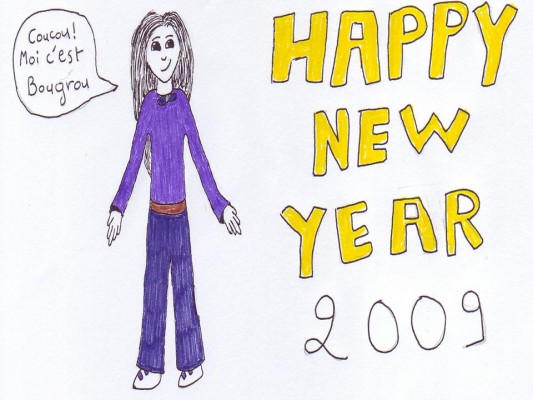 Coucou!
Moi c'est
Bougrou
HAPPY
NEW
YEAR
2009